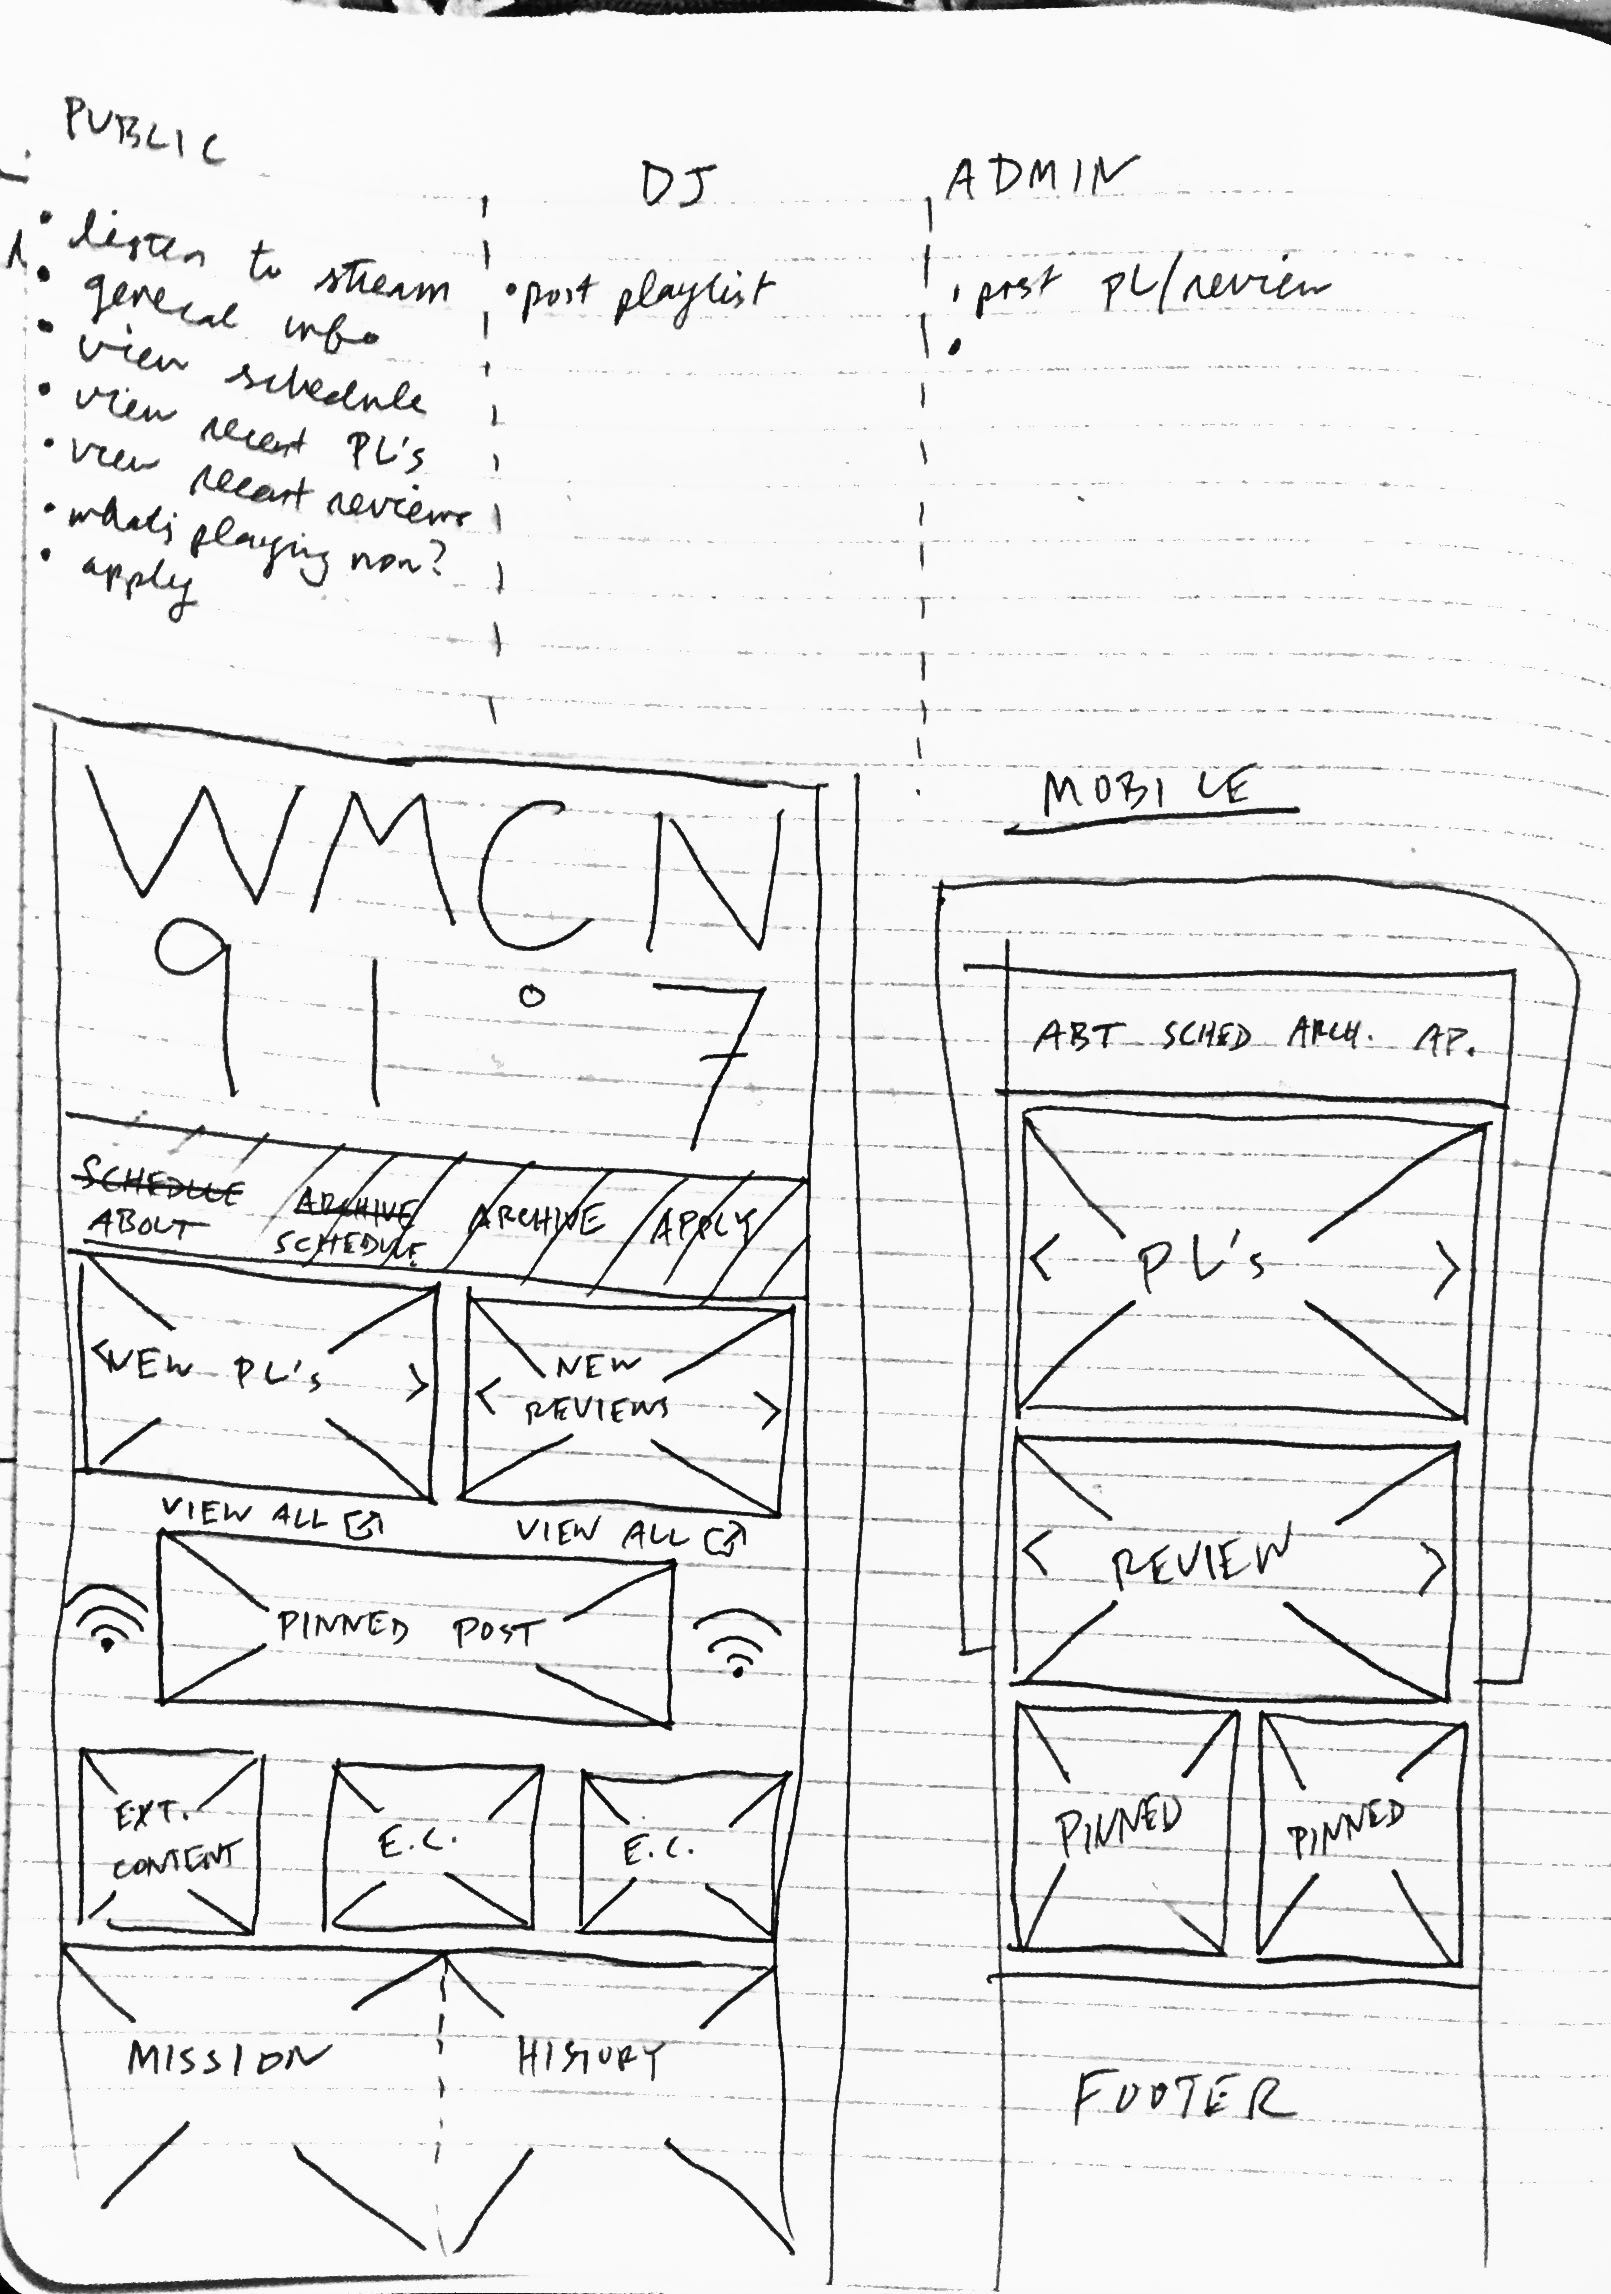 PUBLIC
• listen to stream
• general info
• view schedule
• view recent PL's
• view recent reviews
• what's playing now?
• apply
DJ
• post playlist
ADMIN
• post PL/review
•
WMCN
91.7
SCHEDULE ARCHIVE ARCHIVE APPLY
ABOUT SCHEDULE
< NEW PL's >
< NEW
REVIEWS >
VIEW ALL
VIEW ALL
PINNED POST
EXT.
CONTENT
E.C.
E.C.
MISSION
HISTORY
MOBILE
ABT SCHED ARCH. AP.
< PL's >
< REVIEW >
PINNED
PINNED
FOOTER